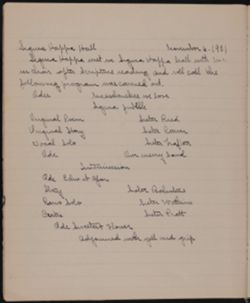 Sigma Kappa Hall November 6, 1901
Sigma Kappa met in Sigma Kappa Hall with
in chair after Scripture reading and roll call the
following program was carried out.
Ode Massachusetts we love
Sigma
Original Poem Sister Reed
Original Story Sister
Vocal Solo Sister
Ode Our merry band
Intermission
Ode
Story Sister
Piano Solo Sister Watkins
Sister Pratt
Ode Sweetest Flower
Adjourned with yell and grip